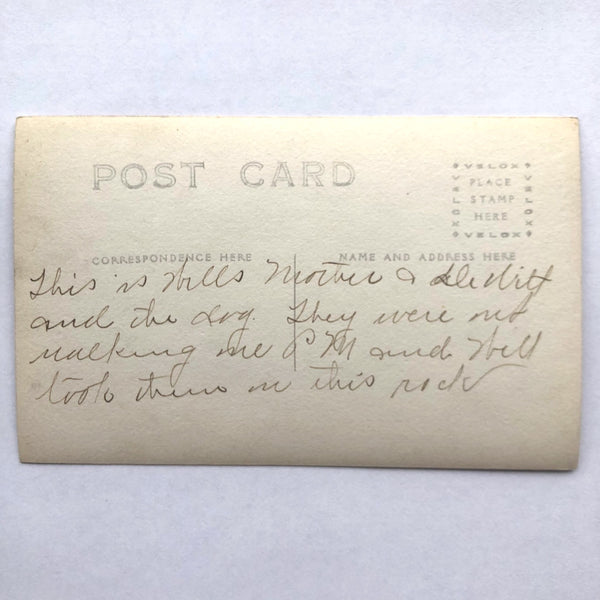 POST CARD
VELOX
VELOX
PLACE
STAMP
HERE
VELOX
VELOX
CORRESPONDENCE HERE
NAME AND ADDRESS HERE
This is Wills Mother & DeWitt
and the dog. They were out
walking one P M and Will
took them on this rock